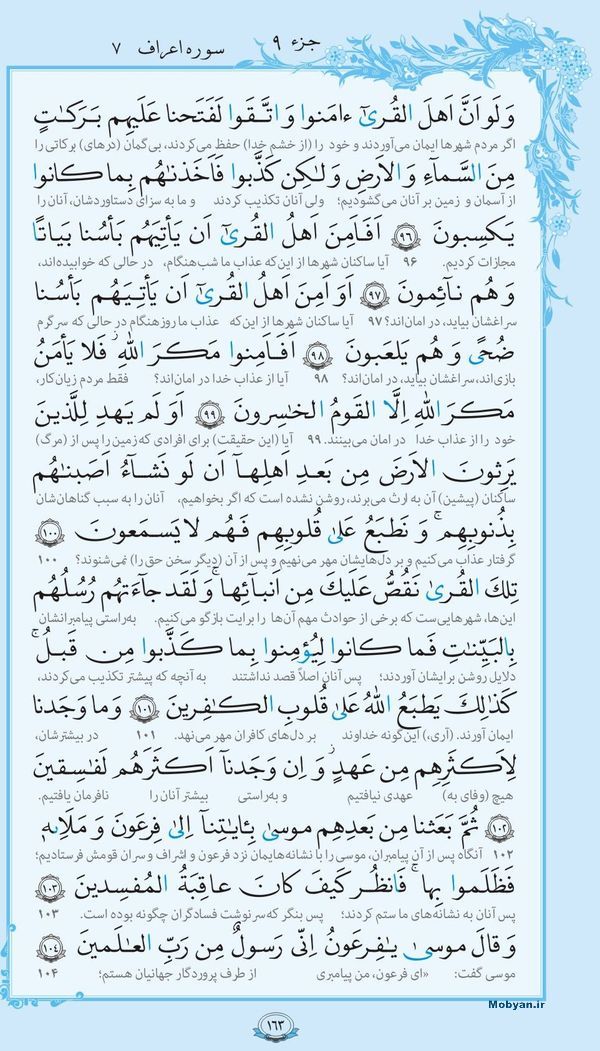 جزء ۹
سوره اعراف ۷
وَ لَو اَنَّ اَهلَ القُرىٰٓ ءامَنوا وَ اتَّقَوا لَفَتَحنا عَلَيهِم بَرَكٰتٍ
اگر مردم شهرها ایمان می‌آوردند و خود را (از خشم خدا) حفظ می‌کردند، بی‌گمان (درهای) برکاتی را
مِنَ السَّمآءِ وَ الاَرضِ وَ لٰكِن كَذَّبوا فَاَخَذنٰهُم بِما كانوا
از آسمان و زمین بر آنان می‌گشودیم؛ ولی آنان تکذیب کردند و ما به سزای دستاوردشان، آنان را
يَكسِبونَ ۹۶ اَفَاَمِنَ اَهلُ القُرىٰٓ اَن يَأتِيَهُم بَأسُنا بَياتًا
مجازات کردیم. ۹۶ آیا ساکنان شهرها از این‌که عذاب ما شب‌هنگام، در حالی که خوابیده‌اند،
وَ هُم نآئِمونَ ۹۷ اَوَ اَمِنَ اَهلُ القُرىٰٓ اَن يَأتِيَهُم بَأسُنا
سراغشان بیاید، در امان‌اند؟ ۹۷ آیا ساکنان شهرها از این‌که عذاب ما روزهنگام در حالی که سرگرم
ضُحًى وَ هُم يَلعَبونَ ۹۸ اَفَاَمِنوا مَكرَ اللهِ ۚ فَلا يَأمَنُ
بازی‌اند، سراغشان بیاید، در امان‌اند؟ ۹۸ آیا از عذاب خدا در امان‌اند؟ فقط مردم زیان‌کار،
مَكرَ اللهِ اِلَّا القَومُ الخٰسِرونَ ۹۹ اَوَ لَم يَهدِ لِلَّذينَ
خود را از عذاب خدا در امان می‌بینند. ۹۹ آیا (این حقیقت) برای افرادی که زمین را پس از (مرگ)
يَرِثونَ الاَرضَ مِن بَعدِ اَهلِهآ اَن لَو نَشآءُ اَصَبنٰهُم
ساکنان (پیشین) آن به ارث می‌برند، روشن نشده است که اگر بخواهیم، آنان را به سبب گناهان‌شان
بِذُنوبِهِم ۚ وَ نَطبَعُ عَلىٰ قُلوبِهِم فَهُم لا يَسمَعونَ ۱۰۰
گرفتار عذاب می‌کنیم و بر دل‌هایشان مهر می‌نهیم و پس از آن (دیگر سخن حق را) نمی‌شنوند؟ ۱۰۰
تِلكَ القُرىٰ نَقُصُّ عَلَيكَ مِن اَنبآئِها ۚ وَ لَقَد جآءَتهُم رُسُلُهُم
این‌ها، شهرهایی‌ست که برخی از حوادث مهم آن‌ها را برایت بازگو می‌کنیم. به‌راستی پیامبرانشان
بِالبَيِّنٰتِ فَما كانوا لِيُؤمِنوا بِما كَذَّبوا مِن قَبلُ ۚ
دلایل روشن برایشان آوردند؛ پس آنان اصلاً قصد نداشتند به آنچه که پیشتر تکذیب می‌کردند،
كَذٰلِكَ يَطبَعُ اللهُ عَلىٰ قُلوبِ الكٰفِرينَ ۱۰۱ وَ ما وَجَدنا
ایمان آورند. (آری،) این‌گونه خداوند بر دل‌های کافران مهر می‌نهد. ۱۰۱ در بیشترشان،
لِاَكثَرِهِم مِن عَهدٍ ۖ وَ اِن وَجَدنآ اَكثَرَهُم لَفٰسِقينَ
هیچ (وفای به) عهدی نیافتیم و به‌راستی بیشتر آنان را نافرمان یافتیم.
۱۰۲ ثُمَّ بَعَثنا مِن بَعدِهِم موسىٰ بِـٔايٰتِنآ اِلىٰ فِرعَونَ وَ مَلَاِيهِ
۱۰۲ آنگاه پس از آن پیامبران، موسی را با نشانه‌هایمان نزد فرعون و اشراف و سران قومش فرستادیم؛
فَظَلَموا بِها ۖ فَانظُر كَيفَ كانَ عاقِبَةُ المُفسِدينَ ۱۰۳
پس آنان به نشانه‌های ما ستم کردند؛ پس بنگر که سرنوشت فسادگران چگونه بوده است. ۱۰۳
وَ قالَ موسىٰ يٰفِرعَونُ اِنّى رَسولٌ مِن رَبِّ العٰلَمينَ ۱۰۴
موسی گفت: «ای فرعون، من پیامبری از طرف پروردگار جهانیان هستم؛ ۱۰۴
۱۶۳
Mobyan.ir